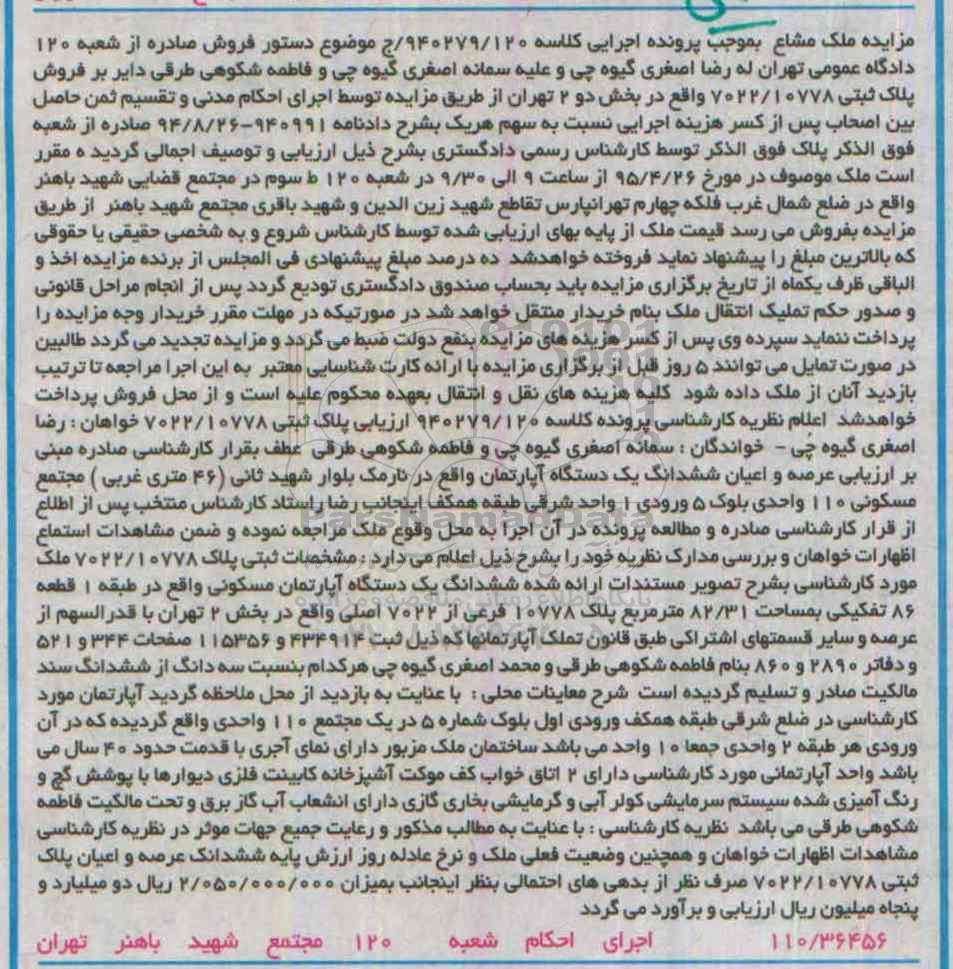 مزایده ملک مشاع بموجب پرونده اجرایی کلاسه ۹۴۰۲۷۹/۱۲۰/ج موضوع دستور فروش صادره از شعبه ۱۲۰
دادگاه عمومی تهران له رضا اصغری گیوه چی و علیه سمانه اصغری گیوه چی و فاطمه شکوهی طرقی دایر بر فروش
پلاک ثبتی ۷۰۲۲/۱۰۷۷۸ واقع در بخش دو ۲ تهران از طریق مزایده توسط اجرای احکام مدنی و تقسیم ثمن حاصل
بین اصحاب پس از کسر هزینه اجرایی نسبت به سهم هریک بشرح دادنامه ۹۴۰۹۹۱-۹۴/۸/۲۶ صادره از شعبه
فوق الذکر پلاک فوق الذکر توسط کارشناس رسمی دادگستری بشرح ذیل ارزیابی و توصیف اجمالی گردید ه مقرر
است ملک موصوف در مورخ ۹۵/۴/۲۶ از ساعت ۹ الی ۹/۳۰ در شعبه ۱۲۰ ط سوم در مجتمع قضایی شهید باهنر
واقع در ضلع شمال غرب فلکه چهارم تهرانپارس تقاطع شهید زین الدین و شهید باقری مجتمع شهید باهنر از طریق
مزایده بفروش می رسد قیمت ملک از پایه بهای ارزیابی شده توسط کارشناس شروع و به شخصی حقیقی یا حقوقی
که بالاترین مبلغ را پیشنهاد نماید فروخته خواهدشد ده درصد مبلغ پیشنهادی فی المجلس از برنده مزایده اخذ و
الباقی ظرف یکماه از تاریخ برگزاری مزایده باید بحساب صندوق دادگستری تودیع گردد پس از انجام مراحل قانونی
و صدور حکم تملیک انتقال ملک بنام خریدار منتقل خواهد شد در صورتیکه در مهلت مقرر خریدار وجه مزایده را
پرداخت ننماید سپرده وی پس از کسر هزینه های مزایده بنفع دولت ضبط می گردد و مزایده تجدید می گردد طالبین
در صورت تمایل می توانند ۵ روز قبل از برگزاری مزایده با ارائه کارت شناسایی معتبر به این اجرا مراجعه تا ترتیب
بازدید آنان از ملک داده شود کلیه هزینه های نقل و انتقال بعهده محکوم علیه است و از محل فروش پرداخت
خواهدشد اعلام نظریه کارشناسی پرونده کلاسه ۹۴۰۲۷۹/۱۲۰ ارزیابی پلاک ثبتی ۷۰۲۲/۱۰۷۷۸ خواهان : رضا
اصغری گیوه چی - خواندگان : سمانه اصغری گیوه چی و فاطمه شکوهی طرقی عطف بقرار کارشناسی صادره مبنی
بر ارزیابی عرصه و اعیان ششدانگ یک دستگاه آپارتمان واقع در نارمک بلوار شهید ثانی (۴۶ متری غربی ) مجتمع
مسکونی ۱۱۰ واحدی بلوک ۵ ورودی ۱ واحد شرقی طبقه همکف اینجانب رضا راستاد کارشناس منتخب پس از اطلاع
از قرار کارشناسی صادره و مطالعه پرونده در آن اجرا به محل وقوع ملک مراجعه نموده و ضمن مشاهدات استماع
اظهارات خواهان و بررسی مدارک نظریه خود را بشرح ذیل اعلام می دارد : مشخصات ثبتی پلاک ۷۰۲۲/۱۰۷۷۸ ملک
مورد کارشناسی بشرح تصویر مستندات ارائه شده ششدانگ یک دستگاه آپارتمان مسکونی واقع در طبقه ۱ قطعه
۸۶ تفکیکی بمساحت ۸۲/۳۱ مترمربع پلاک ۱۰۷۷۸ فرعی از ۷۰۲۲ اصلی واقع در بخش ۲ تهران با قدرالسهم از
عرصه و سایر قسمتهای اشتراکی طبق قانون تملک آپارتمانها که ذیل ثبت ۴۳۴۹۱۴ و ۱۱۵۳۵۶ صفحات ۳۴۴ و ۵۲۱
و دفاتر ۲۸۹۰ و ۸۶۰ بنام فاطمه شکوهی طرقی و محمد اصغری گیوه چی هرکدام بنسبت سه دانگ از ششدانگ سند
مالکیت صادر و تسلیم گردیده است شرح معاینات محلی : با عنایت به بازدید از محل ملاحظه گردید آپارتمان مورد
کارشناسی در ضلع شرقی طبقه همکف ورودی اول بلوک شماره ۵ در یک مجتمع ۱۱۰ واحدی واقع گردیده که در آن
ورودی هر طبقه ۲ واحدی جمعا ۱۰ واحد می باشد ساختمان ملک مزبور دارای نمای آجری با قدمت حدود ۴۰ سال می
باشد واحد آپارتمانی مورد کارشناسی دارای ۲ اتاق خواب کف موکت آشپزخانه کابینت فلزی دیوارها با پوشش گچ و
رنگ آمیزی شده سیستم سرمایشی کولر آبی و گرمایشی بخاری گازی دارای انشعاب آب گاز برق و تحت مالکیت فاطمه
شکوهی طرقی می باشد نظریه کارشناسی : با عنایت به مطالب مذکور و رعایت جمیع جهات موثر در نظریه کارشناسی
مشاهدات اظهارات خواهان و همچنین وضعیت فعلی ملک و نرخ عادله روز ارزش پایه ششدانک عرصه و اعیان پلاک
ثبتی ۷۰۲۲/۱۰۷۷۸ صرف نظر از بدهی های احتمالی بنظر اینجانب بمیزان ۲/۰۵۰/۰۰۰/۰۰۰ ریال دو میلیارد و
پنجاه میلیون ریال ارزیابی و برآورد می گردد
۱۱۰/۳۶۴۵۶ اجرای احکام شعبه ۱۲۰ مجتمع شهید باهنر تهران